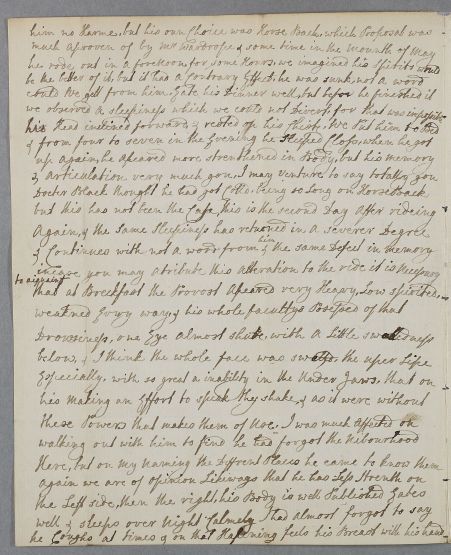 him no Harme, but his own Choice was Horse Back, which Proposal was
much aproven of by Mr Wardrope, & some time in the Mounth of May
he rode out in a forenoon for some Hours, we imagined his Spirits would
be the better of it, but it had a Contrary Effect, he was sunk, not a word
could We get from him. Eate his Dinner well, but befor he finished it
we observed a sleepiness which we could not Divert, for that was impossible
his Head inclined forward, & rested on his Chest, We Put him to Bed
& from four to seven in the Evening he Sleeped Closs, when he got
up again, he apeared more strenthened in Body, but his memory
& articulation very much gon, I may Venture to say totaly gon
Docter Black thought he had got Cold, being so long on Horse Back
but this has not been the Case, This is the second Day after rideing
Again, & the same Sleepiness has returned in a severer Degree
& Continues with not a word from him & the same Defect in memory
incase you may atribute this alteration to the ride it is Necessary
to acquaint that at Breckfast the Provost Apeared very Heavy, Low spirited,
weakned Every way, & his whole facultys Possessed of that
Drousseness, one Eye almost shut, with a Little swelledness
below, & I think the whole face was swelled, the uper Lipe
Especially, with so great a inability in the Under Jaws, that on
his Making an Effort to speak they shake, & as it were without
these Powers that makes them of Use, I was much affected on
walking out with him to find he had forgot the Nibourhood
Here, but on my Naming the Diffrent Places he came to know them
again we are of opinion Likewayes that he has Less Strenth on
the Left side, then the right, his Body is well Publoshed Eates
well & sleeps over Night Calmely I had almost forgot to say
he Coughs at times & on that Hapening feels his Breast with his hand